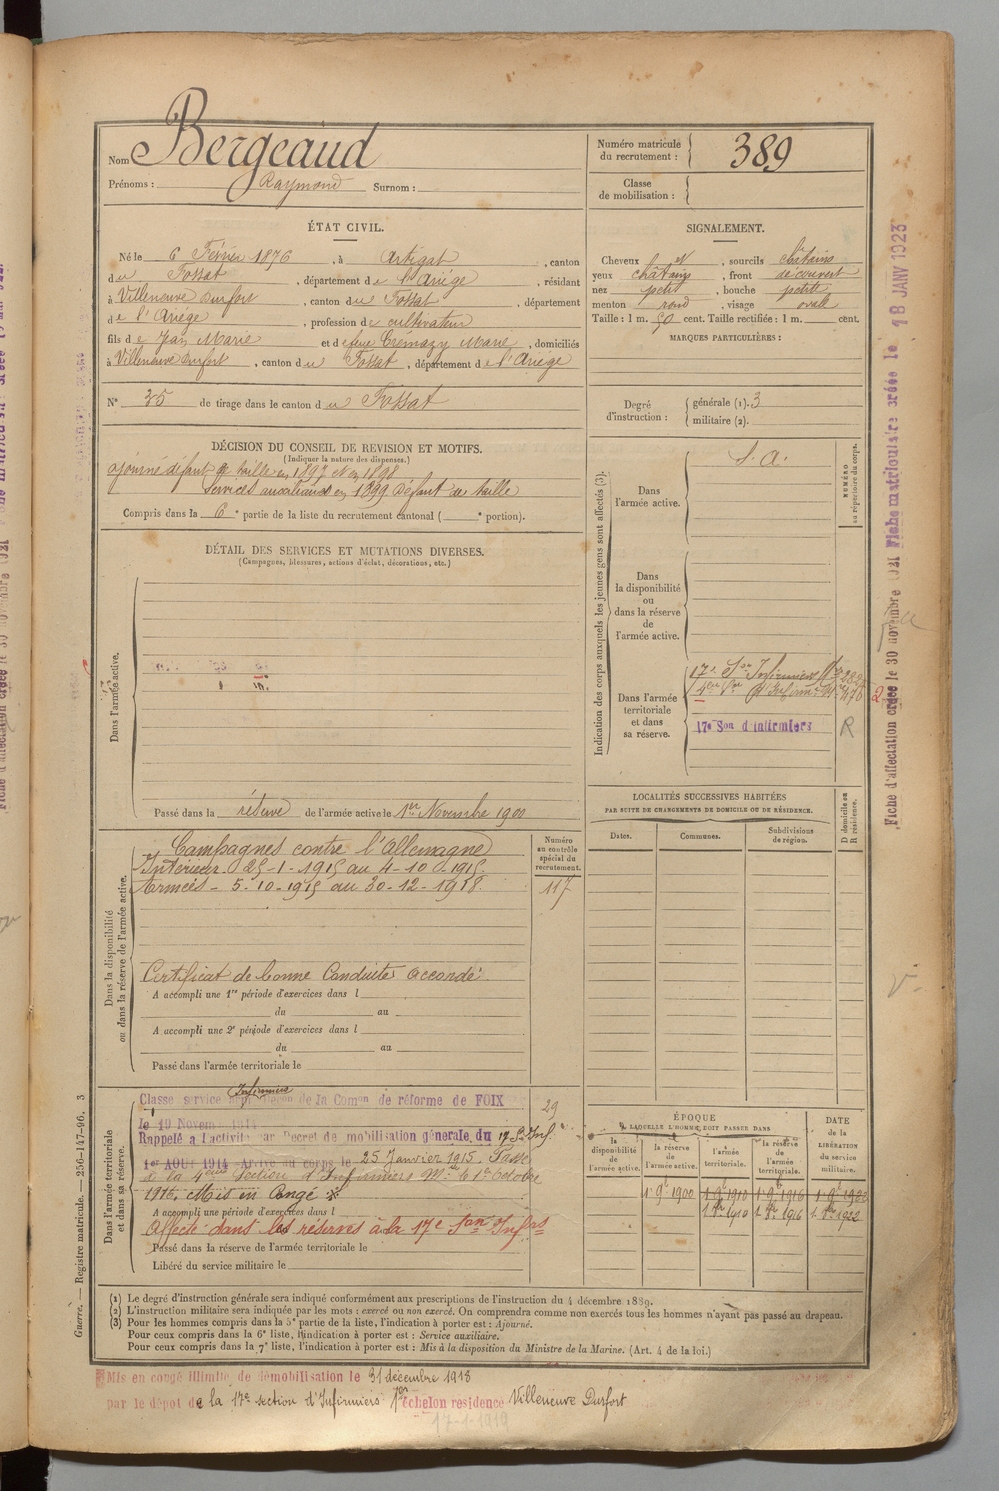 Nom Bergeaud
Prénoms : Raymond Surnom :
Numéro matricule du recrutement : 389
Classe de mobilisation :
ÉTAT CIVIL.
Né le 6 Février 1876, à Artigat, canton
du Fossat, département de l'Ariège, résidant
à Villeneuve Durfort, canton du Fossat, département
de l'Ariège, profession de cultivateur
fils de Jean Marie et de feue Cremazy Marie, domiciliés
à Villeneuve Durfort, canton du Fossat, département de l'Ariège
N° 35 de tirage dans le canton du Fossat
SIGNALEMENT.
Cheveux et, sourcils châtains
yeux châtains, front découvert
nez petit, bouche petite
menton rond, visage ovale
Taille : 1 m. 50 cent. Taille rectifiée : 1 m. cent.
MARQUES PARTICULIÈRES :
Degré d'instruction : générale (1). 3
militaire (2).
DÉCISION DU CONSEIL DE REVISION ET MOTIFS.
(Indiquer la nature des dispenses.)
ajourné défaut de taille en 1897 et en 1898
Services auxiliaires en 1899 Défaut de taille
Compris dans la 6e partie de la liste du recrutement cantonal ( e portion).
DÉTAIL DES SERVICES ET MUTATIONS DIVERSES.
(Campagnes, blessures, actions d'éclat, décorations, etc.)
Dans l'armée active.
Passé dans la réserve de l'armée active le 1er Novembre 1900
Indication des corps auxquels les jeunes gens sont affectés (3).
NUMÉRO au répertoire du corps.
Dans l'armée active.
S. A.
Dans la disponibilité ou dans la réserve de l'armée active.
Dans l'armée territoriale et dans sa réserve.
17e Son Infirmiers
d'Infirm.
17e Son d'Infirmiers
R
LOCALITÉS SUCCESSIVES HABITÉES
PAR SUITE DE CHANGEMENTS DE DOMICILE OU DE RÉSIDENCE.
D domicile ou R résidence.
Dates. Communes. Subdivisions de région.
Dans la disponibilité ou dans la réserve de l'armée active.
Numéro au contrôle spécial du recrutement.
117
Campagnes contre l'Allemagne
Intérieur - 25-1-1915 au 4-10-1915.
Armées - 5-10-1915 au 30-12-1918.
Certificat de bonne Conduite accordé
A accompli une 1re période d'exercices dans l
du au
A accompli une 2e période d'exercices dans l
du au
Passé dans l'armée territoriale le
Dans l'armée territoriale et dans sa réserve.
Infirmiers
Classe service de la Comon de réforme de FOIX
29
le 19 Novem 1914
Rappelé à l'activité par Décret de mobilisation générale du 17 Son Inf.
1er AOUT 1914 Arrivé au corps le 25 Janvier 1915 Passé
à la Section d'Infirmiers Mre le 1er Octobre
1916. Mis en congé
A accompli une période d'exercices dans l
Affecté dans les réserves à la 17e Son Infrs
Passé dans la réserve de l'armée territoriale le
Libéré du service militaire le
ÉPOQUE
À LAQUELLE L'HOMME DOIT PASSER DANS
DATE de la LIBÉRATION du service militaire.
la disponibilité de l'armée active. la réserve de l'armée active. l'armée territoriale. la réserve de l'armée territoriale.
1. 9e 1900 1. 9e 1910 1. 9e 1916
1910 1916 1922
(1) Le degré d'instruction générale sera indiqué conformément aux prescriptions de l'instruction du 4 décembre 1889.
(2) L'instruction militaire sera indiquée par les mots : exercé ou non exercé. On comprendra comme non exercés tous les hommes n'ayant pas passé au drapeau.
(3) Pour les hommes compris dans la 5e partie de la liste, l'indication à porter est : Ajourné.
Pour ceux compris dans la 6e liste, l'indication à porter est : Service auxiliaire.
Pour ceux compris dans la 7e liste, l'indication à porter est : Mis à la disposition du Ministre de la Marine. (Art. 4 de la loi.)
Mis en congé illimité de démobilisation le 31 décembre 1918
par le dépot de la 17e section d'Infirmiers échelon résidence Villeneuve Durfort
17-1-1919
Guerre. — Registre matricule. — 256-147-96. 3
Fiche d'affectation créée le 30 novembre 1921 Fiche matriculaire créée le 18 JANV 1923